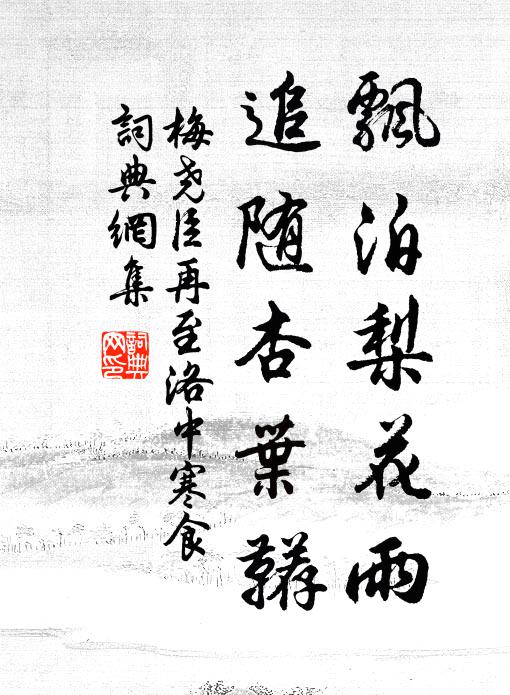 飄泊梨花雨
追随杏葉韉
梅尧臣再至洛中寒食
詞典網集
詞典網印